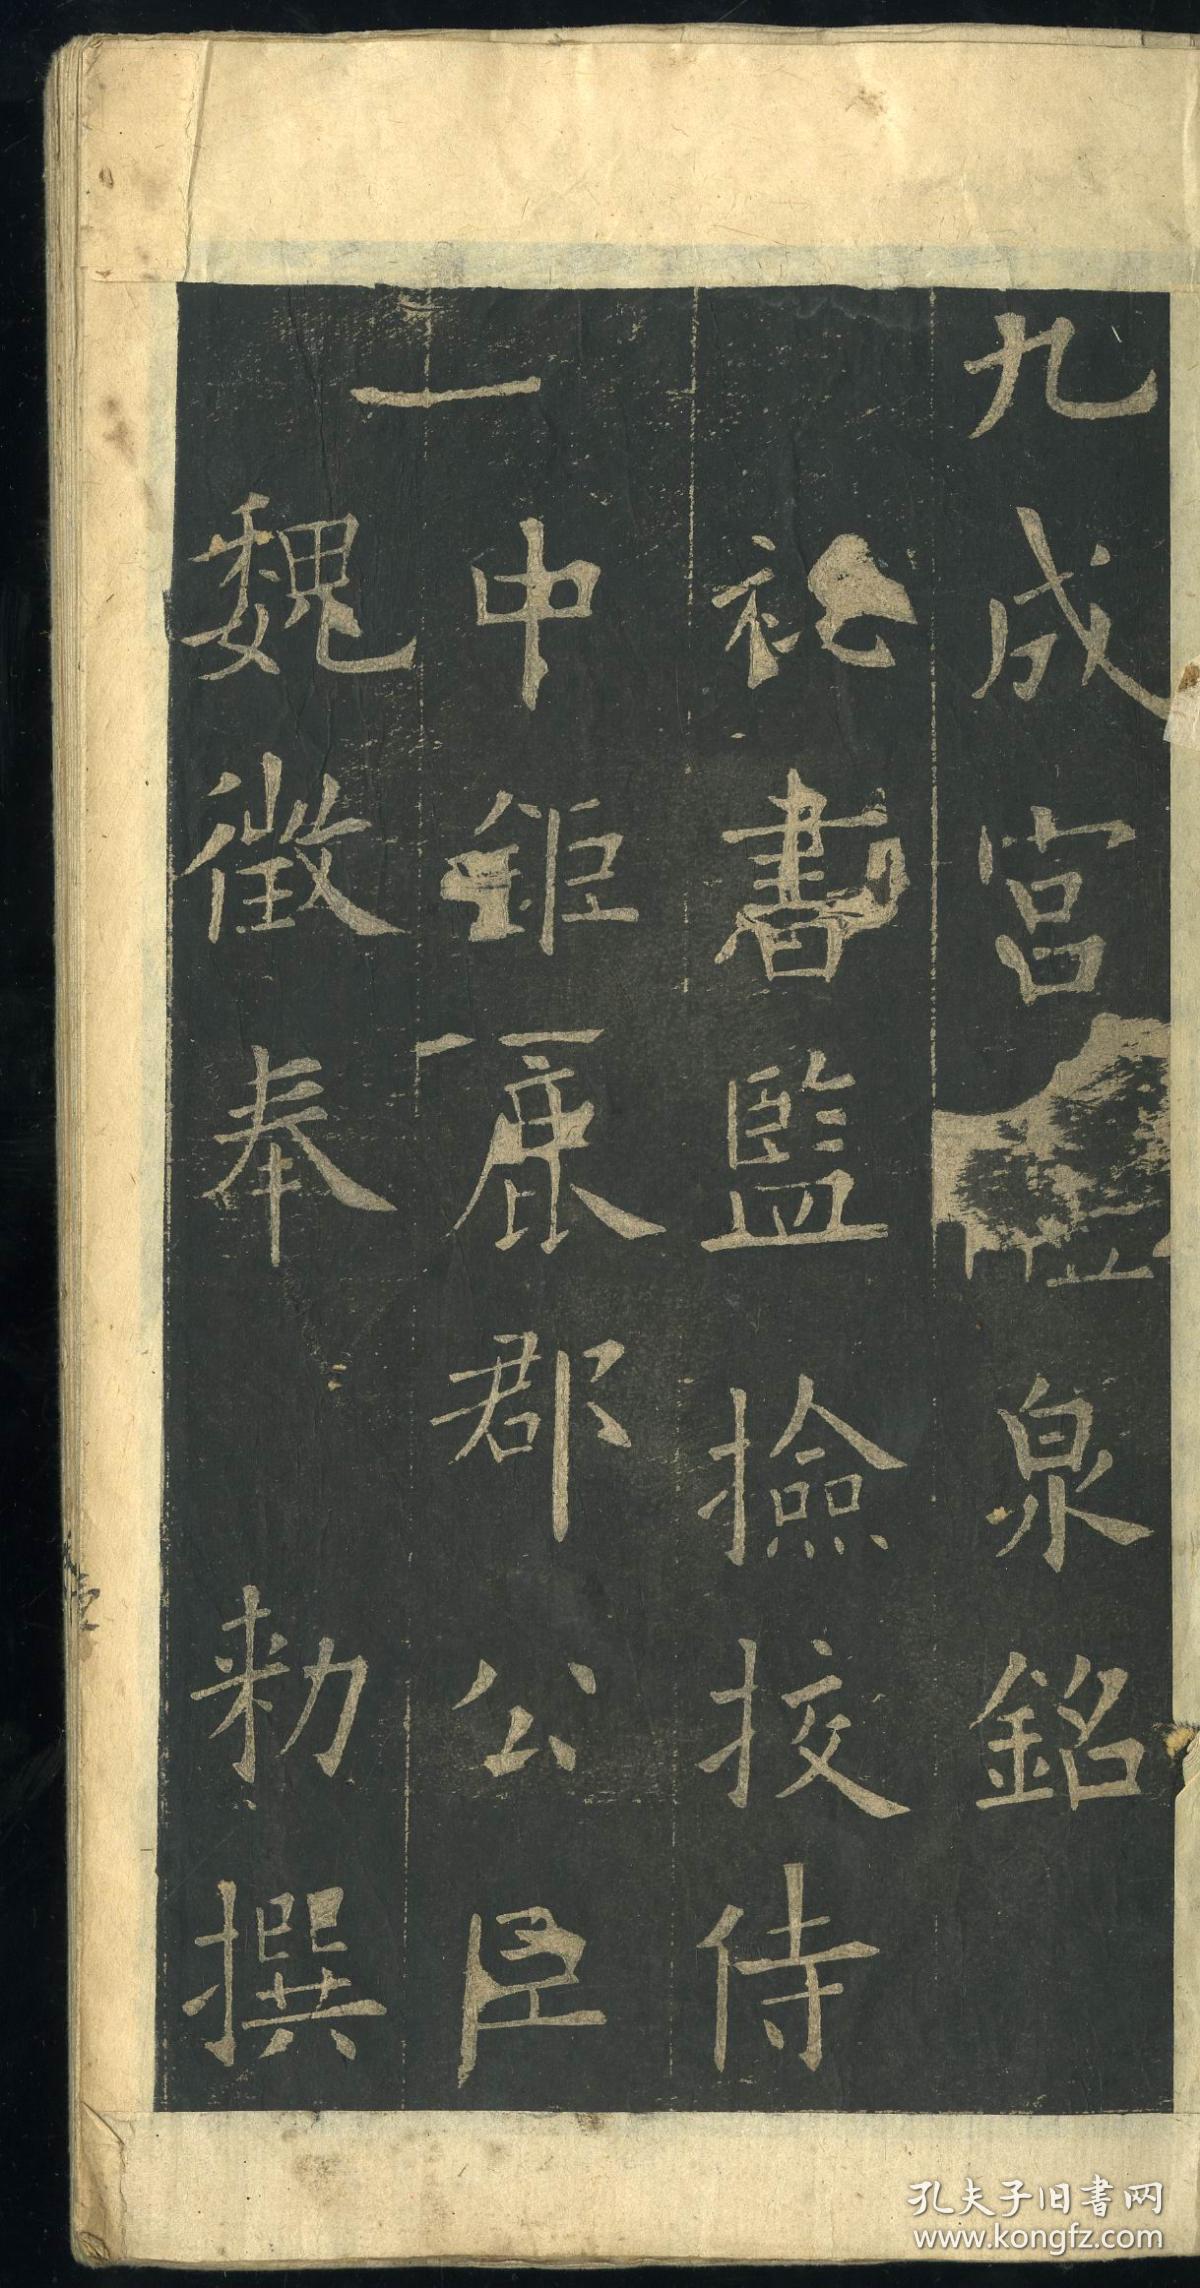 九成宮醴泉銘
祕書監撿挍侍
中鉅鹿郡公臣
魏徵奉敕撰
孔夫子旧書网
www.kongfz.com